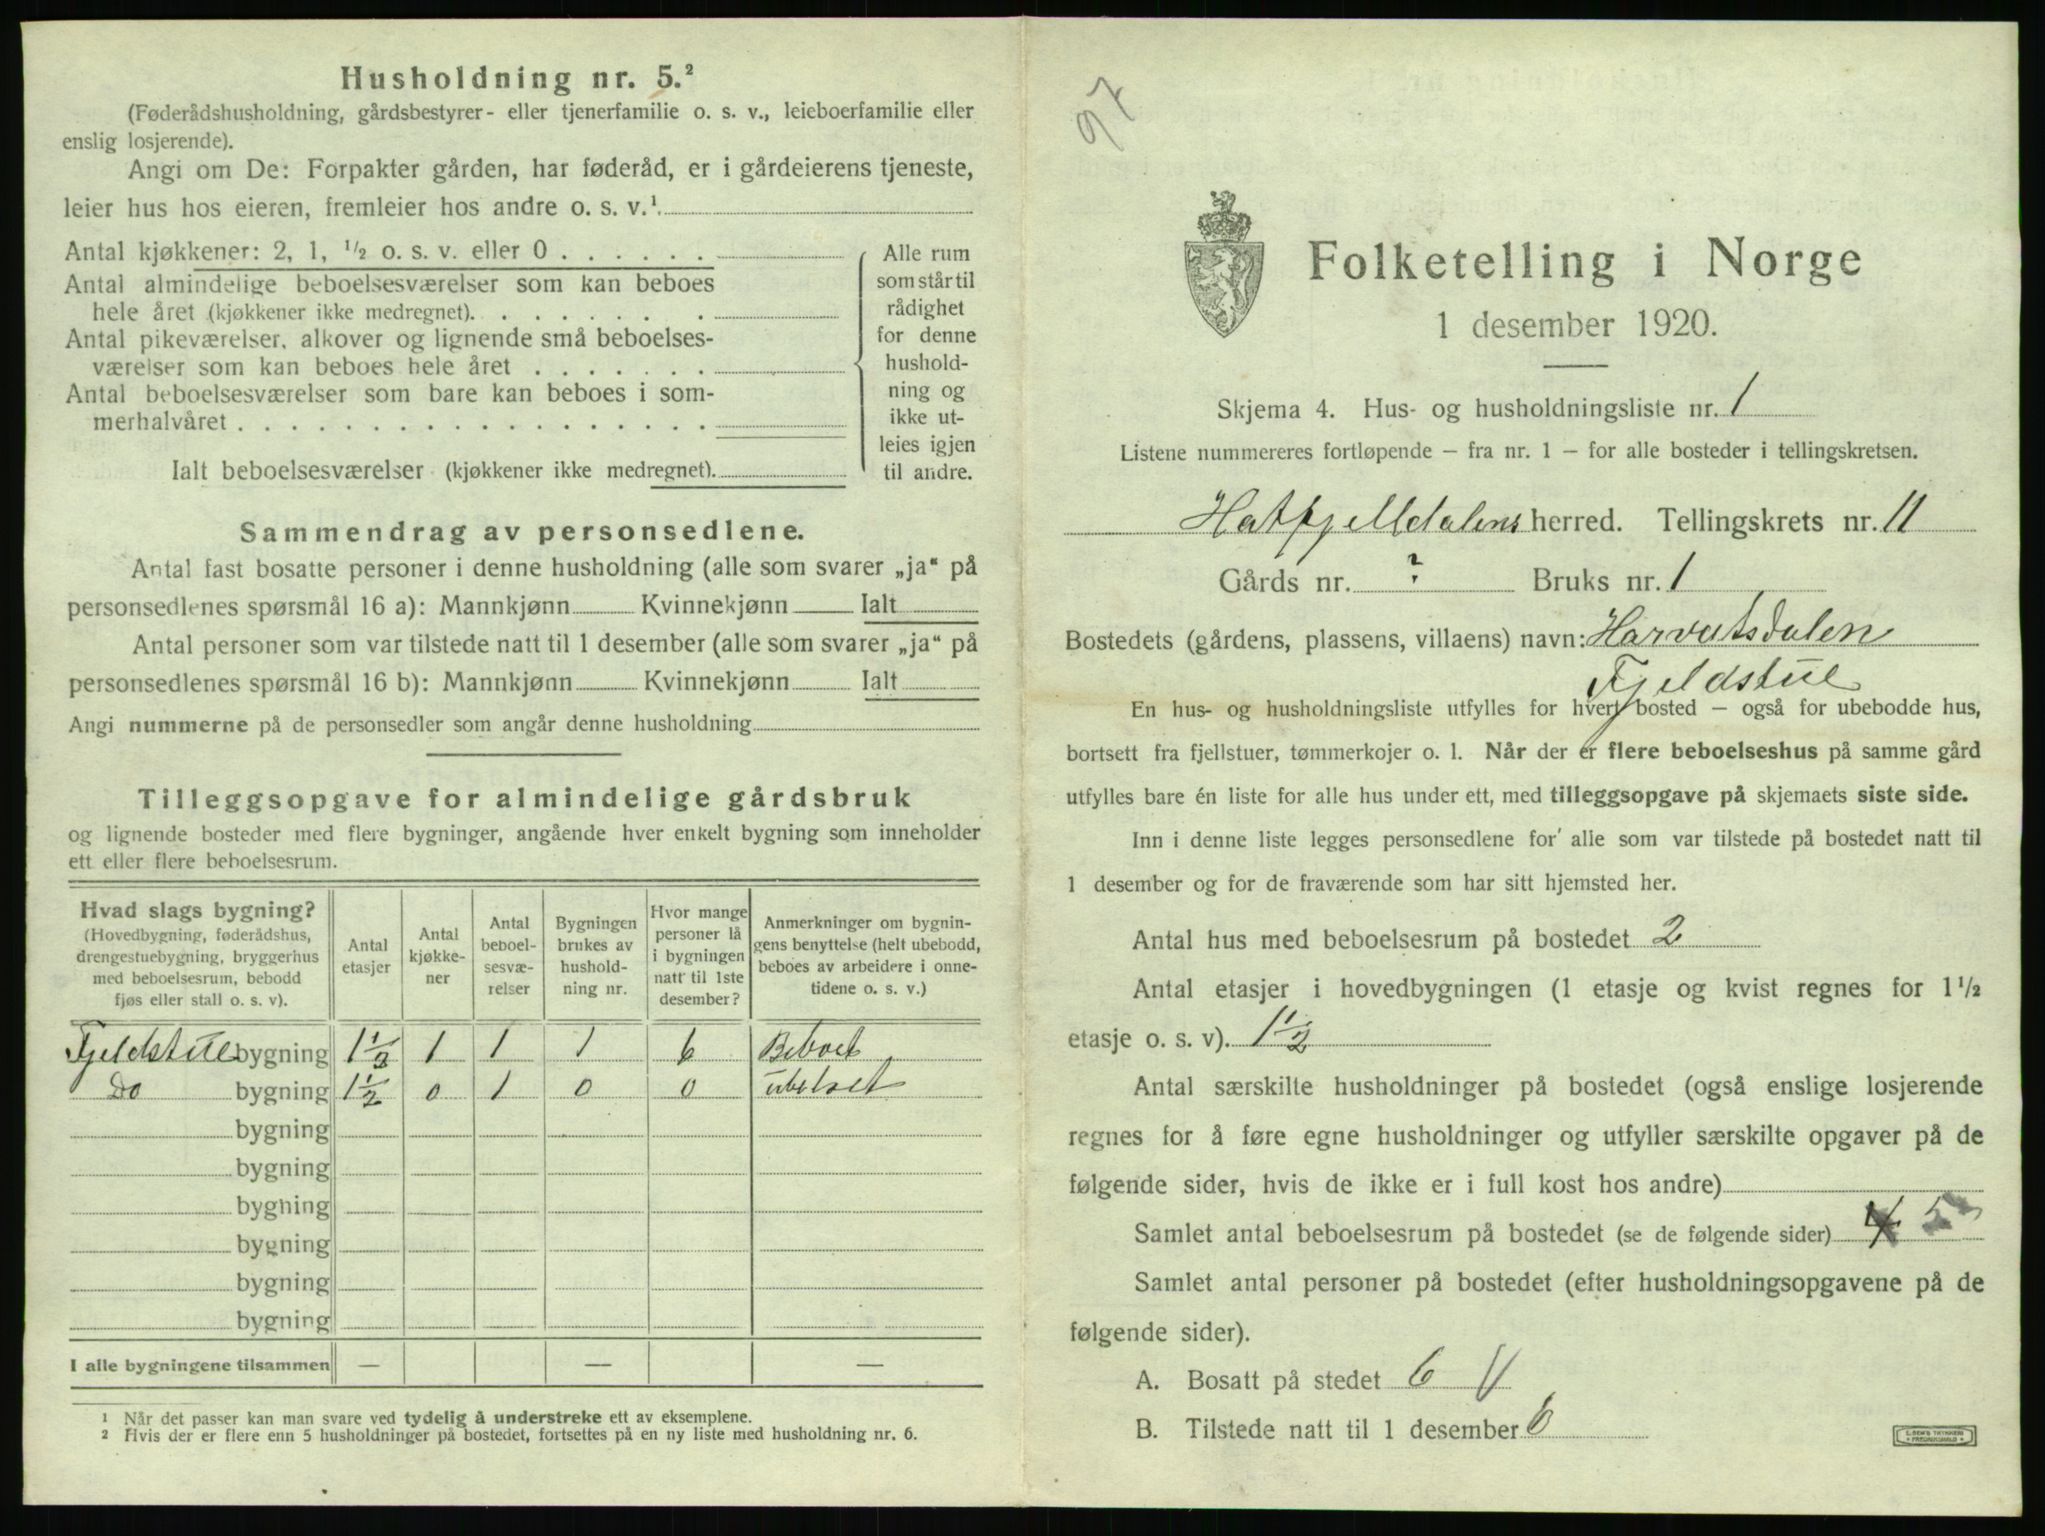 Husholdning nr. 5.²
(Føderådshusholdning, gårdsbestyrer- eller tjenerfamilie o. s. v., leieboerfamilie eller
enslig losjerende).
Angi om De: Forpakter gården, har føderåd, er i gårdeierens tjeneste,
leier hus hos eieren, fremleier hos andre o. s. v.¹
Antal kjøkkener: 2, 1, ½ o. s. v. eller 0
Antal almindelige beboelsesværelser som kan beboes
hele året (kjøkkener ikke medregnet).
Antal pikeværelser, alkover og lignende små beboelses-
værelser som kan beboes hele året
Antal beboelsesværelser som bare kan beboes i som-
merhalvåret
Ialt beboelsesværelser (kjøkkener ikke medregnet).
Alle rum
som står til
rådighet
for denne
hushold-
ning og
ikke ut-
leies igjen
til andre.
Sammendrag av personsedlene.
Antal fast bosatte personer i denne husholdning (alle som svarer „ja“ på
personsedlenes spørsmål 16 a): Mannkjønn Kvinnekjønn Ialt
Antal personer som var tilstede natt til 1 desember (alle som svarer „ja“ på
personsedlenes spørsmål 16 b): Mannkjønn Kvinnekjønn Ialt
Angi nummerne på de personsedler som angår denne husholdning
Tilleggsopgave for almindelige gårdsbruk
og lignende bosteder med flere bygninger, angående hver enkelt bygning som inneholder
ett eller flere beboelsesrum.
Hvad slags bygning?
(Hovedbygning, føderådshus,
drengestuebygning, bryggerhus
med beboelsesrum, bebodd
fjøs eller stall o. s. v).
Antal
etasjer
Antal
kjøkke-
ner
Antal
beboel-
sesvæ-
relser
Bygningen
brukes av
hushold-
ning nr.
Hvor mange
personer lå
i bygningen
natt til 1ste
desember?
Anmerkninger om bygnin-
gens benyttelse (helt ubebodd,
beboes av arbeidere i onne-
tidene o. s. v.)
Fjeldstue bygning 1½ 1 1 1 6 Beboet
Do bygning 1½ 0 1 0 0 ubeboet
bygning
bygning
bygning
bygning
bygning
bygning
I alle bygningene tilsammen — — —
¹ Når det passer kan man svare ved tydelig å understreke ett av eksemplene.
² Hvis der er flere enn 5 husholdninger på bostedet, fortsettes på en ny liste med husholdning nr. 6.
97
Folketelling i Norge
1 desember 1920.
Skjema 4. Hus- og husholdningsliste nr. 1
Listene nummereres fortløpende – fra nr. 1 – for alle bosteder i tellingskretsen.
Hatfjelldalens herred. Tellingskrets nr. 11
Gårds nr. ? Bruks nr. 1
Bostedets (gårdens, plassens, villaens) navn: Harvatsdalen
Fjeldstue
En hus- og husholdningsliste utfylles for hvert bosted – også for ubebodde hus,
bortsett fra fjellstuer, tømmerkojer o. l. Når der er flere beboelseshus på samme gård
utfylles bare én liste for alle hus under ett, med tilleggsopgave på skjemaets siste side.
Inn i denne liste legges personsedlene for alle som var tilstede på bostedet natt til
1 desember og for de fraværende som har sitt hjemsted her.
Antal hus med beboelsesrum på bostedet 2
Antal etasjer i hovedbygningen (1 etasje og kvist regnes for 1½
etasje o. s. v). 1½
Antal særskilte husholdninger på bostedet (også enslige losjerende
regnes for å føre egne husholdninger og utfyller særskilte opgaver på de
følgende sider, hvis de ikke er i full kost hos andre)
Samlet antal beboelsesrum på bostedet (se de følgende sider) 4 5
Samlet antal personer på bostedet (efter husholdningsopgavene på de
følgende sider).
A. Bosatt på stedet 6
B. Tilstede natt til 1 desember 6